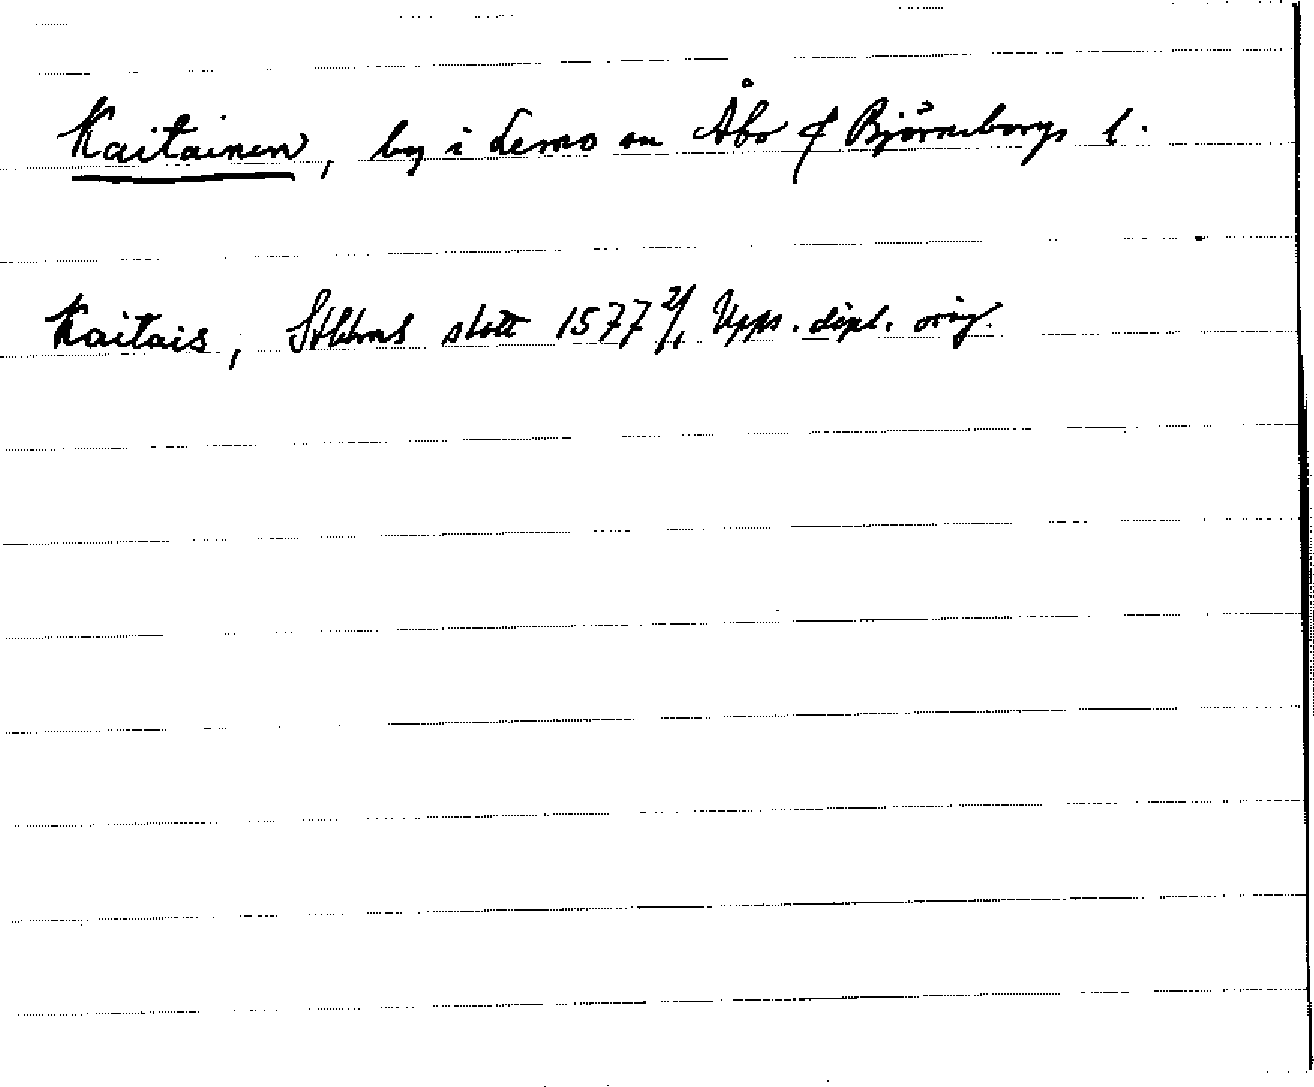 Kaitainen, by i Lemo sn Åbo & Björneborgs l.
Kaitais, Sthlms slott 1577 2/1 Upps. dipl. orig.